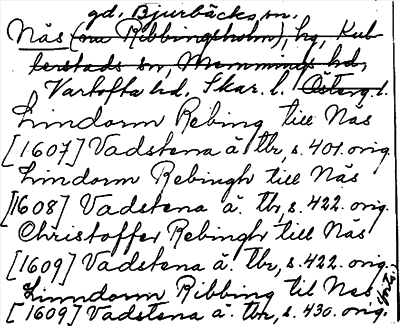 gd. Bjurbäcks sn.
Näs (nu Ribbingsholm), hg, Kul-
lerstads sn, Memmings hd,
Vartofta hd. Skar. l. Österg. l.
Lindorm Rebing till Näs
[1607] Vadstena ä. tbr, s. 401. orig.
Lindorm Rebingh till Näs
[1608] Vadstena ä. tbr, s. 422. orig.
Christoffer Rebingh till Näs
[1609] Vadstena ä. tbr, s. 422. orig.
Linndorm Ribbing til Nes
[1609] Vadstena ä. tbr, s. 430. orig.